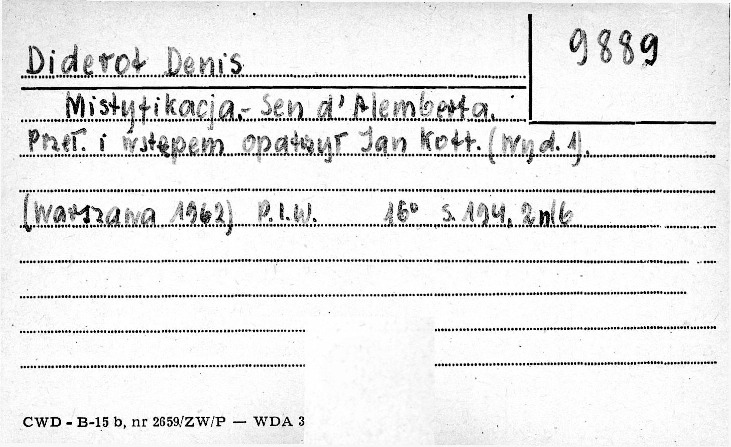 9889
Diderot Denis
Mistyfikacja.- Sen d'Alemberta.
Przeł. i wstępem opatrzył Jan Kott. (Wyd. 1).
(Warszawa 1962) P.I.W. 16° s. 194, 2 nlb
CWD - B-15 b, nr 2659/ZW/P — WDA 3